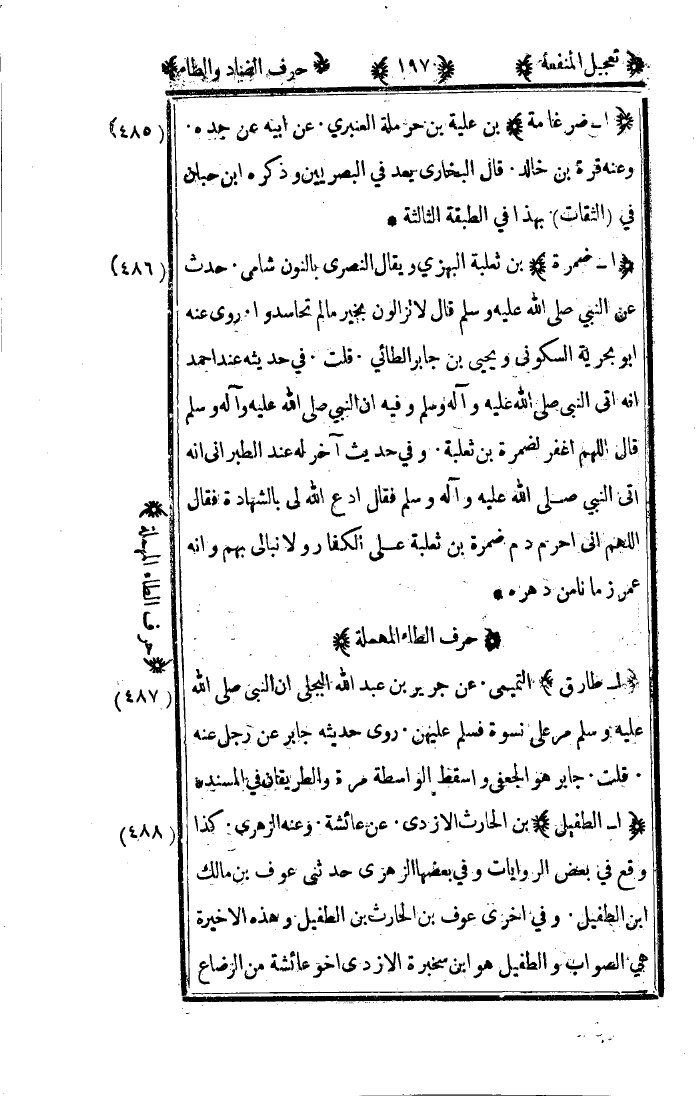 تعجيل المنفعة ﴿١٩٧﴾ حرف الضاد والطاء
(٤٨٥) ﴿ ا ـ ضرغامة ﴾ بن علية بن حرملة العنبري · عن ابيه عن جده ·
وعنه قرة بن خالد · قال البخارى يعد في البصريين وذكره ابن حبان
في (الثقات) بهذا في الطبقة الثالثة *
(٤٨٦) ﴿ ا ـ ضمرة ﴾ بن ثعلبة البهزي ويقال النصرى بالنون شامى · حدث
عن النبي صلى الله عليه وسلم قال لا تزالون بخير مالم تحاسدوا · روى عنه
ابو بحرية السكونى ويحيى بن جابر الطائي · قلت · في حديثه عند احمد
انه اتى النبى صلى الله عليه وآله وسلم وفيه ان النبي صلى الله عليه وآله وسلم
قال اللهم اغفر لضمرة بن ثعلبة · وفي حديث آخر له عند الطبرانى انه
اتى النبي صلى الله عليه وآله وسلم فقال ادع الله لى بالشهادة فقال
اللهم انى احرم دم ضمرة بن ثعلبة على الكفار ولا نبالى بهم وانه
عمر زمانا من دهره *
﴿ حرف الطاء المهملة ﴾
حرف الطاء المهملة
(٤٨٧) ﴿ ا ـ طارق ﴾ التميمى · عن جرير بن عبد الله البجلى ان النبى صلى الله
عليه وسلم مر على نسوة فسلم عليهن · روى حديثه جابر عن رجل عنه
· قلت · جابر هو الجعفى واسقط الواسطة مرة والطريقان في المسند *
(٤٨٨) ﴿ ا ـ الطفيل ﴾ بن الحارث الازدى · عن عائشة · وعنه الزهرى · كذا
وقع في بعض الروايات وفي بعضها الزهرى حدثنى عوف بن مالك
ابن الطفيل · وفي اخرى عوف بن الحارث بن الطفيل وهذه الاخيرة
هي الصواب والطفيل هو ابن سخبرة الازدى اخو عائشة من الرضاع